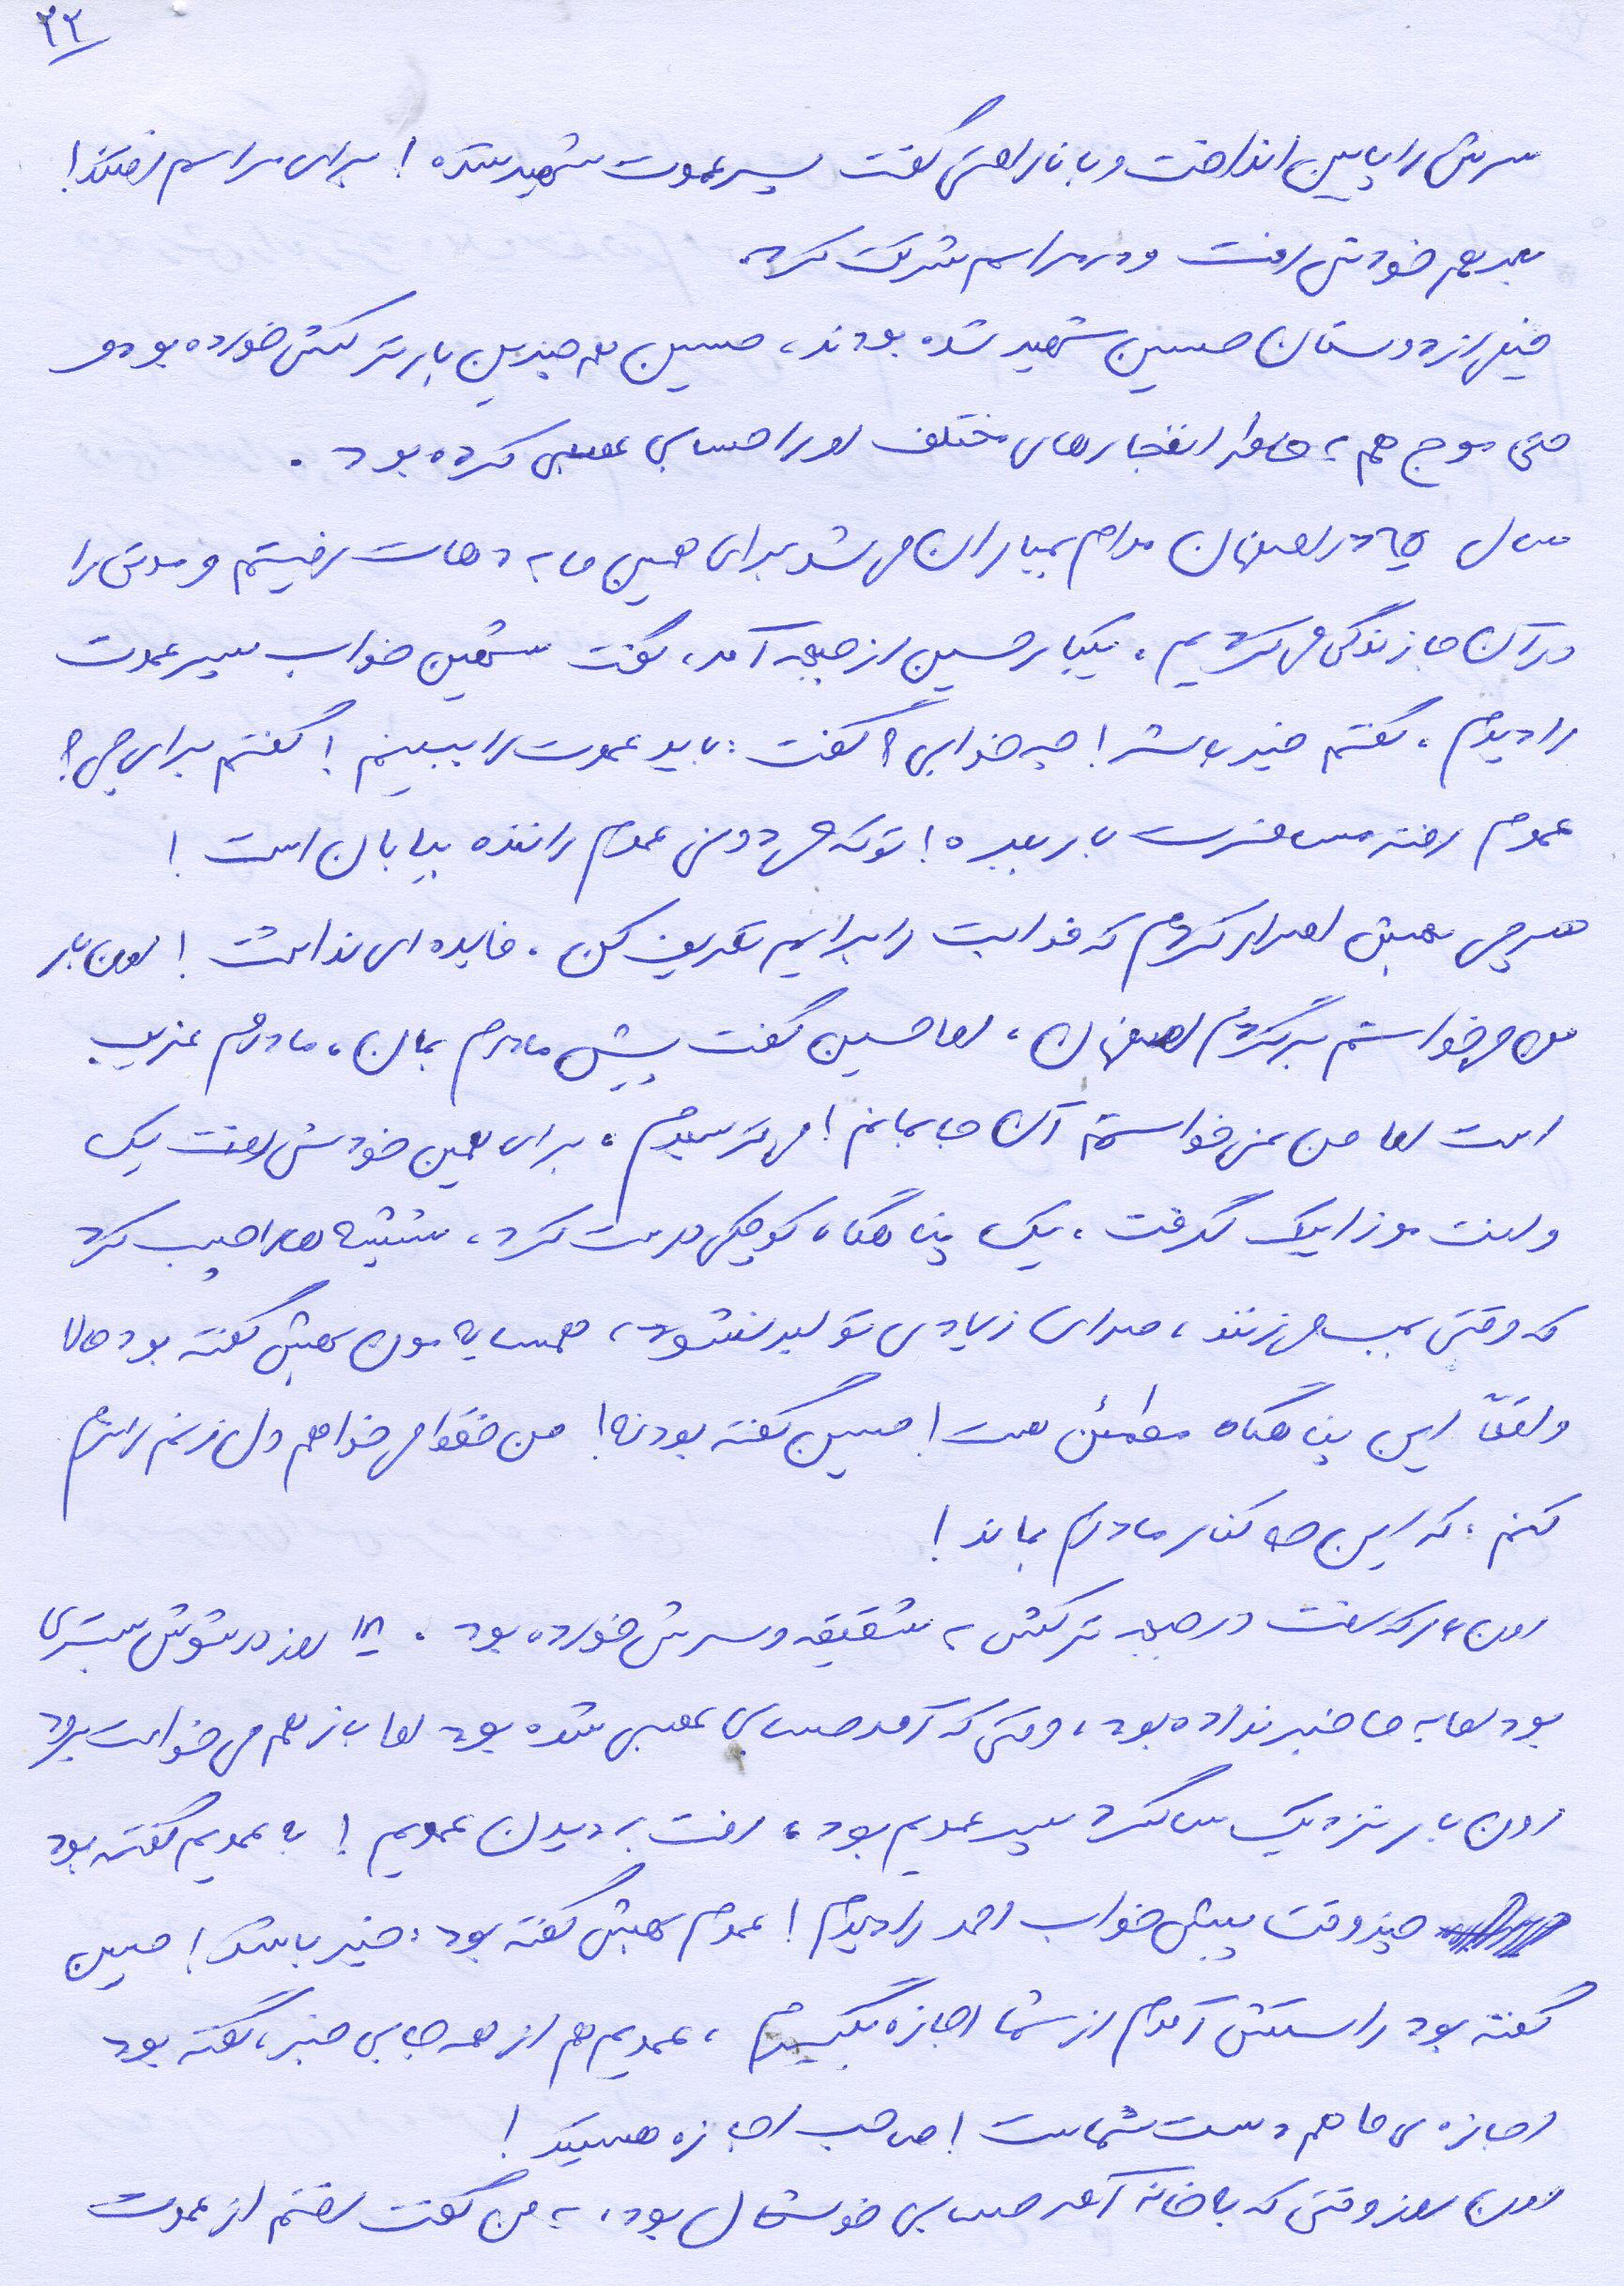 ۲۲
سرش را پایین انداخت و با ناراحتی گفت پسرعموت شهید شده! برای مراسم رفتند!
بعد هم خودش رفت و در مراسم شرکت کرد.
خیلی از دوستان حسین شهید شده بودند، حسین هم چندین بار ترکش خورده بود و
حتی موج هم به خاطر انفجارهای مختلف او را حسابی عصبی کرده بود.
سال ۶۵ در اصفهان مدام بمباران می شد برای همین ما به دهات رفتیم و مدتی را
در آن جا زندگی می کردیم. یکبار حسین از جبهه آمد، گفت شهین خواب پسر عموت
را دیدم. گفتم خیر باشد! چه خوابی؟ گفت: باید عموت را ببینم! گفتم برای چی؟
عموم رفته مسافرت بار ببره! تو که می دونی عموم راننده بیابان است!
هرچی بهش اصرار کردم که خوابت را برایم تعریف کن. فایده ای نداشت! اون بار
من می خواستم برگردم اصفهان، اما حسین گفت پیش مادرم بمان، مادرم غریب
است اما من نمی خواستم آن جا بمانم! می ترسیدم. برای همین خودش رفت یک
وانت موزاییک گرفت، یک پناهگاه کوچکی درست کرد، شیشه ها را چسب کرد
که وقتی بمب می زنند، صدای زیادی تولید نشود، همسایه مون بهش گفته بود حالا
واقعاً این پناهگاه مطمئن هست! حسین گفته بود نه! من فقط می خواهم دل زنم را نرم
کنم، که این جا کنار مادرم بماند!
اون بار که رفت در جبهه ترکش به شقیقه و سرش خورده بود. ۱۸ روز در شوش بستری
بود اما به ما خبر نداده بود، وقتی که آمد حسابی عصبی شده بود اما باز هم می خواست برود
اون بار نزدیک سالگرد پسر عمویم بود، رفت به دیدن عمویم! به عمویم گفته بود
چند وقت پیش خواب احمد را دیدم! عموم بهش گفته بود: خیر باشد! حسین
گفته بود راستش آمدم از شما اجازه بگیرم، عمویم هم از همه جا بی خبر، گفته بود
اجازه ی ما هم دست شماست! صاحب اجازه هستید!
اون روز وقتی که به خانه آمد حسابی خوشحال بود، به من گفت رفتم از عموت